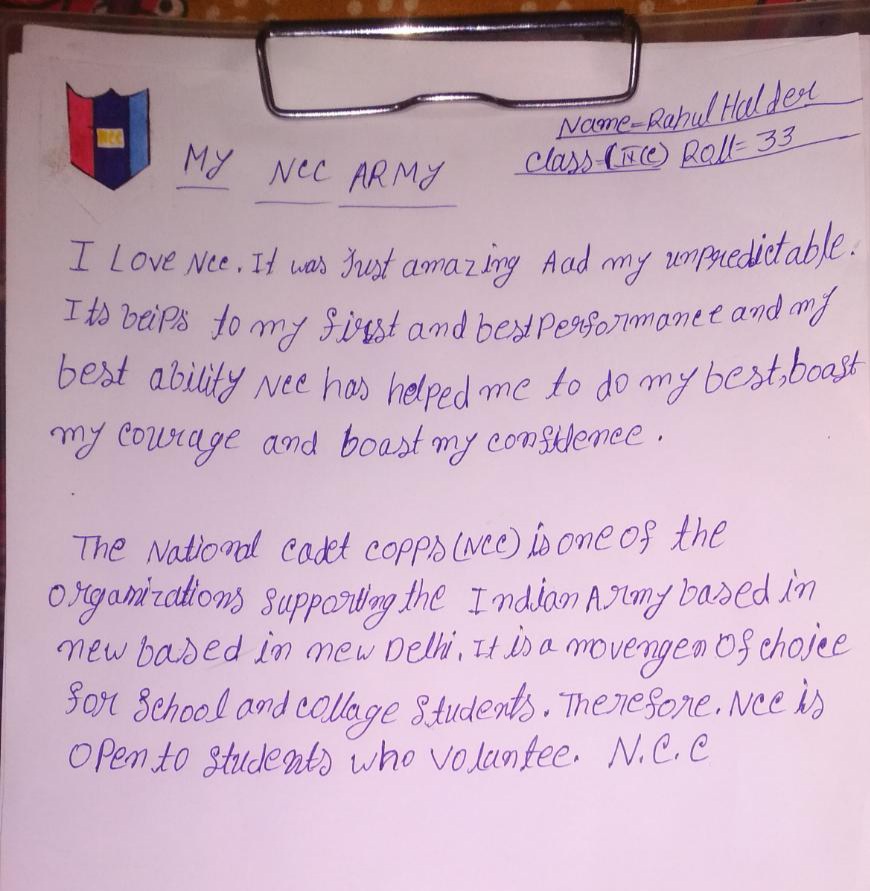 NCC
Name=Rahul Halder
Class-(IX(C) Roll= 33
MY NCC ARMY
I LOVE NCC. It was Just amazing Aad my unpredictable.
Its beips to my first and best Performance and my
best ability NCC has helped me to do my best, boast
my courage and boast my confidence.
The National cadet copps (NCC) is one of the
organizations supporting the Indian Army based in
new based in new Delhi. It is a movengen of choice
for School and collage Students. Therefore. NCC is
open to students who volantee. N.C.C